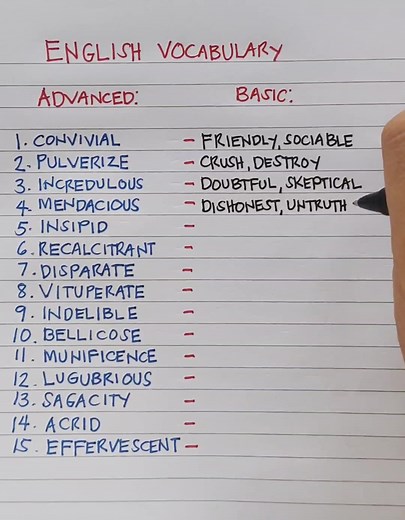 ENGLISH VOCABULARY
ADVANCED: BASIC:
1. CONVIVIAL - FRIENDLY, SOCIABLE
2. PULVERIZE - CRUSH, DESTROY
3. INCREDULOUS - DOUBTFUL, SKEPTICAL
4. MENDACIOUS - DISHONEST, UNTRUTH
5. INSIPID -
6. RECALCITRANT -
7. DISPARATE -
8. VITUPERATE -
9. INDELIBLE -
10. BELLICOSE -
11. MUNIFICENCE -
12. LUGUBRIOUS -
13. SAGACITY -
14. ACRID -
15. EFFERVESCENT -